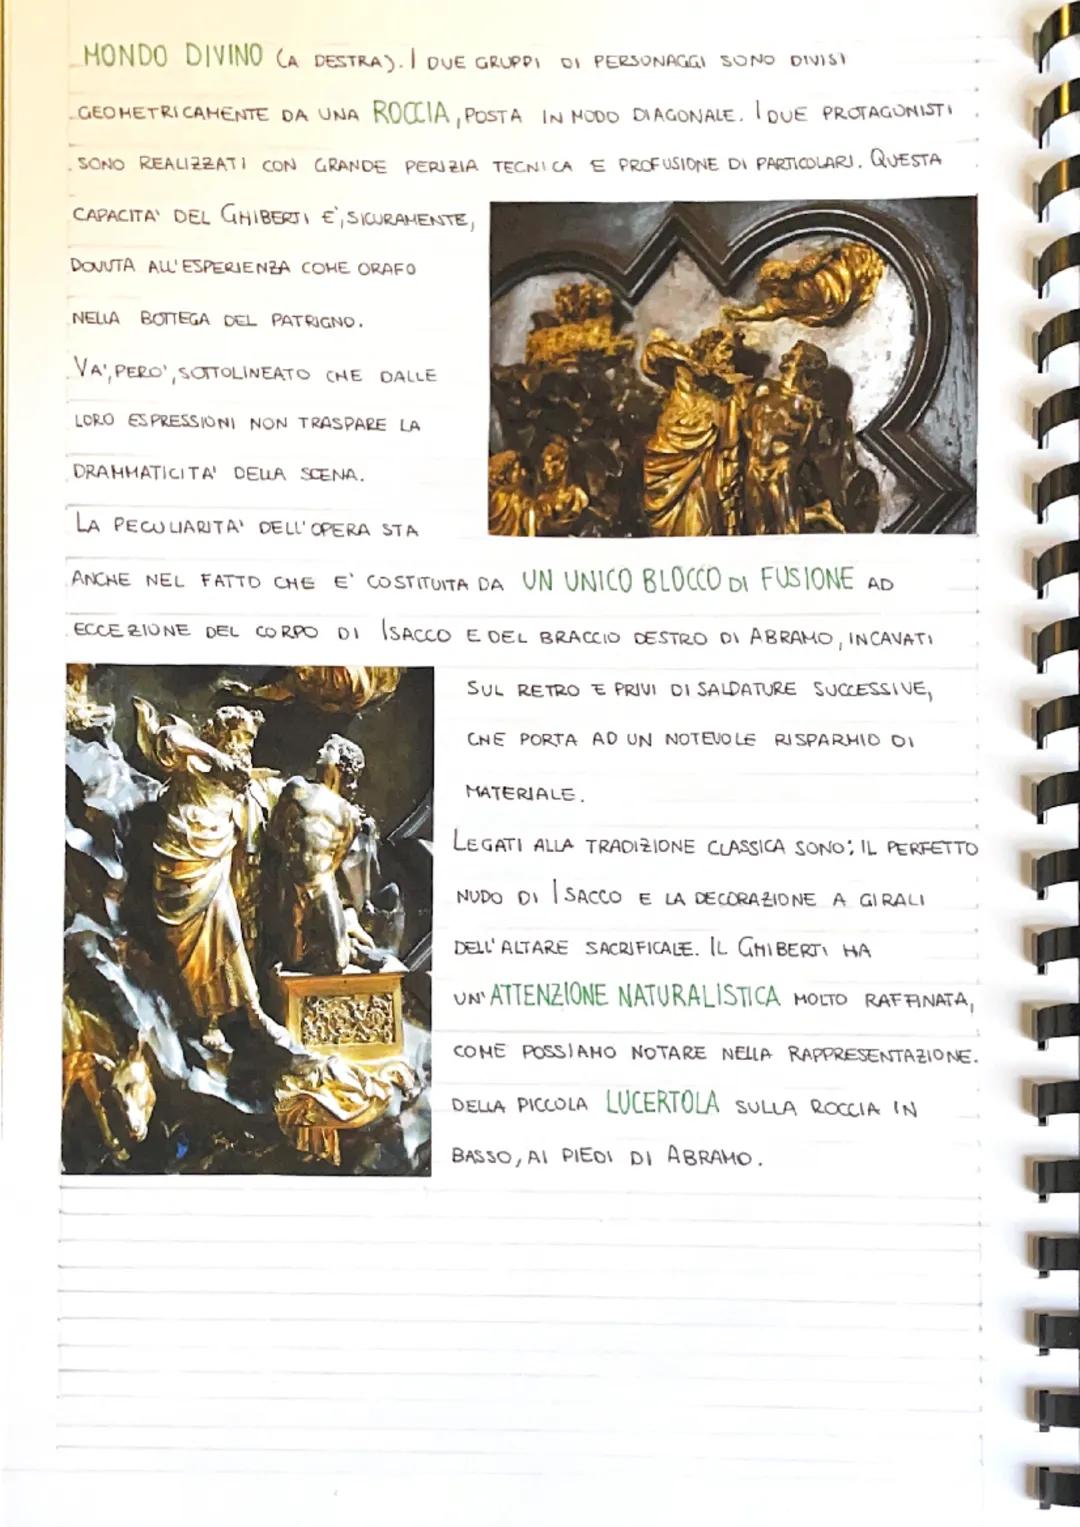 MONDO DIVINO (A DESTRA). I DUE GRUPPI DI PERSONAGGI SONO DIVISI
GEOMETRICAMENTE DA UNA ROCCIA, POSTA IN MODO DIAGONALE. I DUE PROTAGONISTI
SONO REALIZZATI CON GRANDE PERIZIA TECNICA E PROFUSIONE DI PARTICOLARI. QUESTA
CAPACITA' DEL GHIBERTI E', SICURAMENTE,
DOVUTA ALL'ESPERIENZA COME ORAFO
NELLA BOTTEGA DEL PATRIGNO.
VA', PERO', SOTTOLINEATO CHE DALLE
LORO ESPRESSIONI NON TRASPARE LA
DRAMMATICITA' DELLA SCENA.
LA PECULIARITA' DELL'OPERA STA
ANCHE NEL FATTO CHE E' COSTITUITA DA UN UNICO BLOCCO DI FUSIONE AD
ECCEZIONE DEL CORPO DI ISACCO E DEL BRACCIO DESTRO DI ABRAMO, INCAVATI
SUL RETRO E PRIVI DI SALDATURE SUCCESSIVE,
CHE PORTA AD UN NOTEVOLE RISPARMIO DI
MATERIALE.
LEGATI ALLA TRADIZIONE CLASSICA SONO: IL PERFETTO
NUDO DI ISACCO E LA DECORAZIONE A GIRALI
DELL'ALTARE SACRIFICALE. IL GHIBERTI HA
UN'ATTENZIONE NATURALISTICA MOLTO RAFFINATA,
COME POSSIAMO NOTARE NELLA RAPPRESENTAZIONE.
DELLA PICCOLA LUCERTOLA SULLA ROCCIA IN
BASSO, AI PIEDI DI ABRAMO.